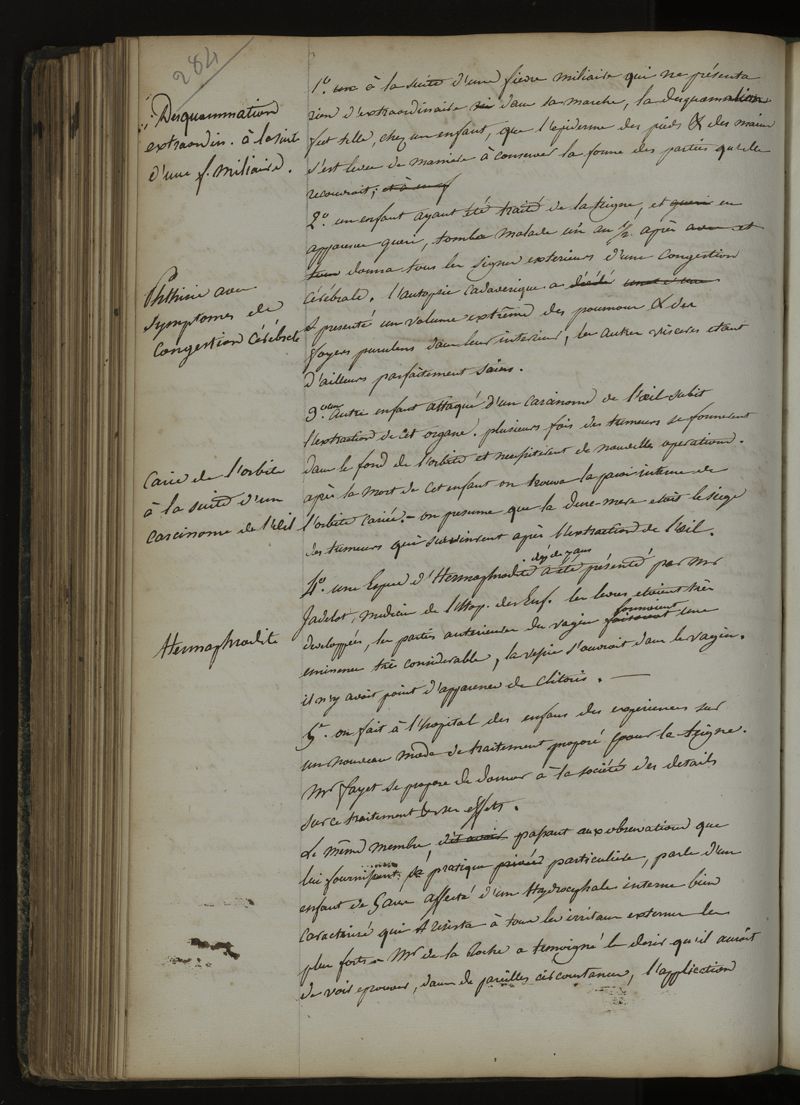 284
Desquammation
extraordin. à la suite
d'une f. miliaire.
1.º à la suite d'une fievre miliaire qui ne présenta
rien d'extraordinaire dans sa marche, la desquammation
fut telle, chez un enfant, que l'épiderme des pieds & des mains
s'est levé de maniere à conserver la forme des parties qu'elle
recouvrait; et à
Phthisie avec
symptomes de
Congestion Cérébrale
2.º un enfant ayant été traité de la teigne, et gueri en
apparence gueri, tomba malade un an ½ après avec et
donna tous les signes exterieurs d'une congestion
cérébrale. l'autopsie cadaverique a décélé
presenté un volume extrême des poumons & des
foyers purulens dans leur interieur, les autres visceres etant
d'ailleurs parfaitement sains.
Carie de l'orbite
à la suite d'un
carcinome de l'œil
3.º un Autre enfant attaqué d'un carcinome de l'œil subit
l'extraction de cet organe. plusieurs fois des tumeurs se formerent
dans le fond de l'orbite et necessiterent de nouvelles operations.
après la mort de cet enfant on trouva la paroi interne de
l'orbite cariée. - on presume que la dure-mere etait le siege
des tumeurs qui survinrent après l'extraction de l'œil.
Hermaphrodite
4.º une Espece d'Hermaphrodite agé de 7 ans a été présenté par Mr
Jadelot, medecin de l'Hop. des Enf. les levres etaient très
developpées, les parties anterieures du vagin faisaient formaient une
eminence très considerable, la vessie s'ouvroit dans le vagin.
il n'y avoit point d'apparence de clitoris. —
5.º on fait à l'hopital des enfans des experiences sur
un nouveau mode de traitement proposé pour la teigne.
Mr Jayet se propose de donner à la société des details
sur ce traitement & ses effets.
Le même membre, dit avoir passant aux observations que
lui fournissent sa pratique privée particuliere, parle d'un
enfant de 5 ans affecté d'un Hydrocéphale interne bien
caractérisé qui resista à tous les irritans externes les
plus forts - Mr de la Roche a temoigné le desir qu'il auroit
de voir eprouver, dans de pareilles circonstances, l'application